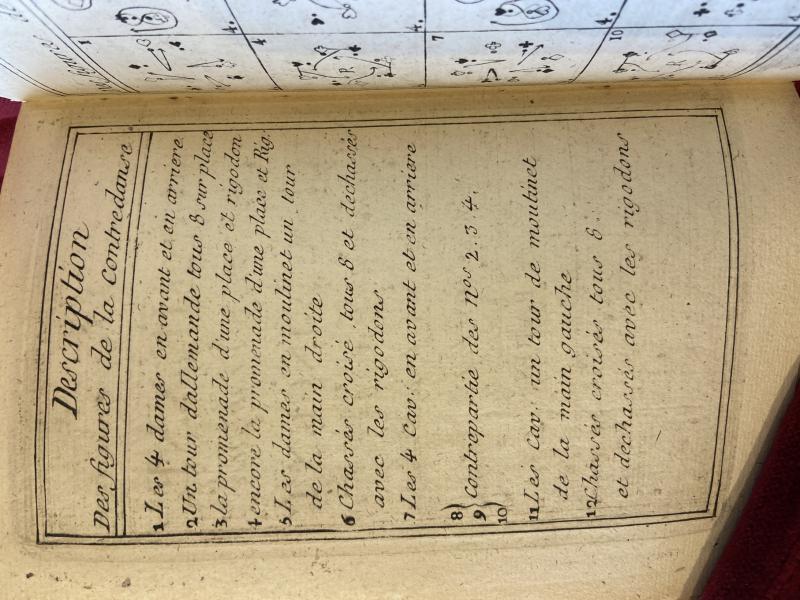 Description
Des figures de la contredanse
1 Les 4 dames en avant et en arriere
2 Un tour d'allemande tous 8 sur place
3 la promenade d'une place et rigodon
4 encore la promenade d'une place et Rig.
5 Les dames en moulinet un tour
de la main droite
6 Chassés croisé tous 8 et dechassés
avec les rigodons
7 Les 4 Cav. en avant et en arriere
8)
9) Contrepartie des nos 2. 3. 4.
10)
11 Les Cav. un tour de moulinet
de la main gauche
12 Chassés croisés tous 8
et dechassés avec les rigodons
1
4.
4
4.
7
4.
10
4